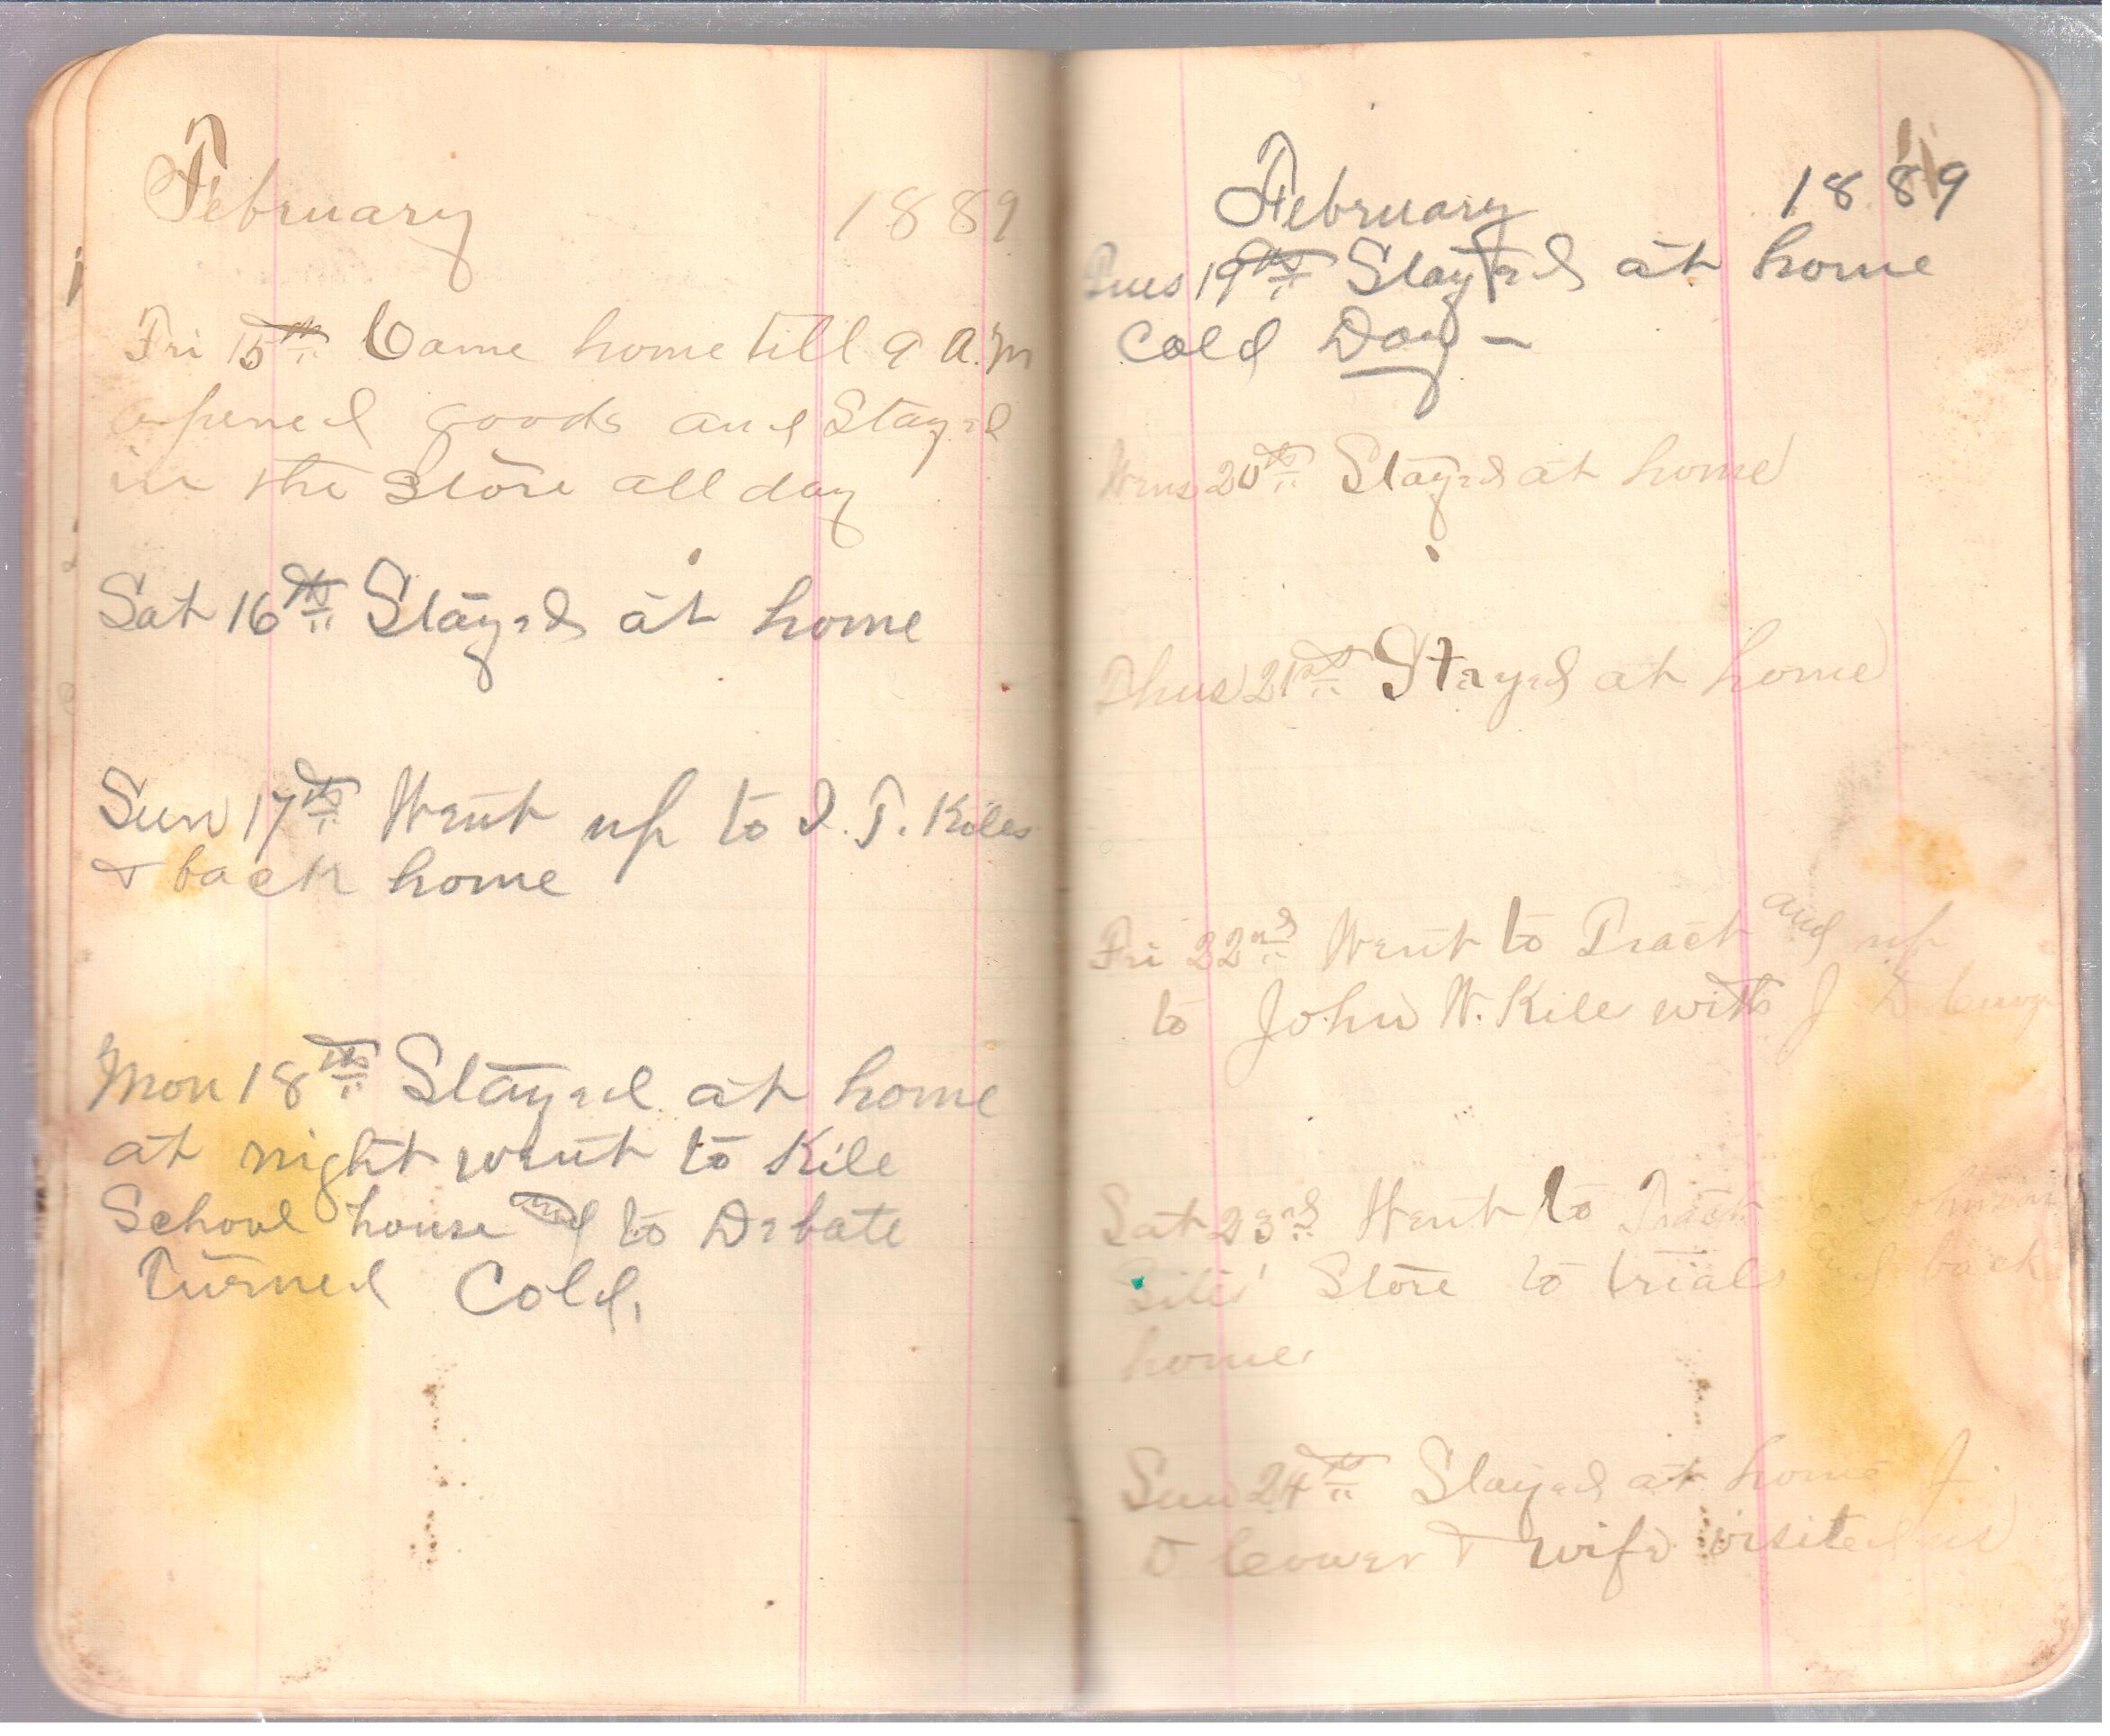 February 1889
Fri 15th Came home till 9 a.m
opened goods and Stayed
in the Store all day
Sat 16th Stayed at home
Sun 17th Went up to I. T. Kiles
& back home
Mon 18th Stayed at home
at night went to Kile
School house and to Debate
Turned Cold.
February 1889
Tues 19th Stayed at home
Cold Day –
Wens 20th Stayed at home
Thus 21st Stayed at home
Fri 22nd Went to Tract and up
to John W. Kile with J
Sat 23rd Went to Tract
Store to trial and back
home
Sun 24th Stayed at home J.
& wife visited us